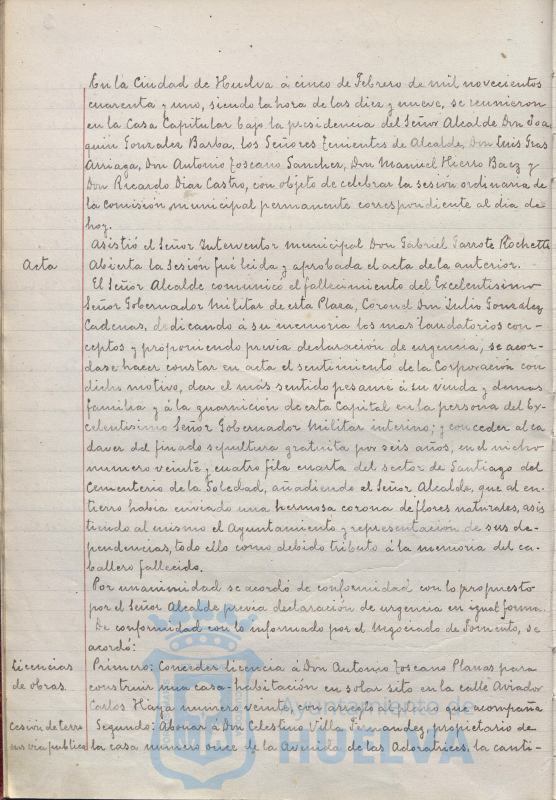 En la Ciudad de Huelva á cinco de Febrero de mil novecientos
cuarenta y uno, siendo la hora de las diez y nueve, se reunieron
en la Casa Capitular bajo la presidencia del Señor Alcalde Don Joa-
quin Gonzalez Barba, los Señores Tenientes de Alcalde, Don Luis Gras
Arriaga, Don Antonio Toscano Sanchez, Don Manuel Hierro Baez y
Don Ricardo Diaz Castro, con objeto de celebrar la sesión ordinaria de
la Comisión municipal permanente correspondiente al dia de
hoy.
Asistió el Señor Interventor municipal Don Gabriel Garrote Rochette
Acta
Abierta la sesión fué leida y aprobada el acta de la anterior.
El Señor Alcalde comunicó el fallecimiento del Excelentisimo
Señor Gobernador Militar de esta Plaza, Coronel Don Julio González
Cadenas, dedicando á su memoria los mas laudatorios con-
ceptos y proponiendo previa declaración de urgencia, se acor-
dase hacer constar en acta el sentimiento de la Corporación con
dicho motivo, dar el más sentido pesame á su viuda y demas
familia y á la guarnición de esta Capital en la persona del Ex-
celentisimo Señor Gobernador Militar interino; y conceder al ca
daver del finado sepultura gratuita por seis años, en el nicho
numero veinte y cuatro fila cuarta del sector de Santiago del
Cementerio de la Soledad, añadiendo el Señor Alcalde, que al en-
tierro habia enviado una hermosa corona de flores naturales, asis
tiendo al mismo el Ayuntamiento y representación de sus de-
pendencias, todo ello como debido tributo á la memoria del ca-
ballero fallecido.
Por unanimidad se acordó de conformidad con lo propuesto
por el Señor Alcalde previa declaración de urgencia en igual forma.
De conformidad con lo informado por el Negociado de Fomento, se
acordó:
Licencias
de obras.
Primero: Conceder licencia á Don Antonio Toscano Planas para
construir una casa-habitación en solar sito en la calle Aviador
Carlos Haya numero veinte, con arreglo al plano que acompaña
Cesión de terre
nos via publica
Segundo: Abonar á Don Celestino Villa Fernandez, propietario de
la casa numero once de la Avenida de las Adoratrices, la canti-
Ayuntamiento de
HUELVA